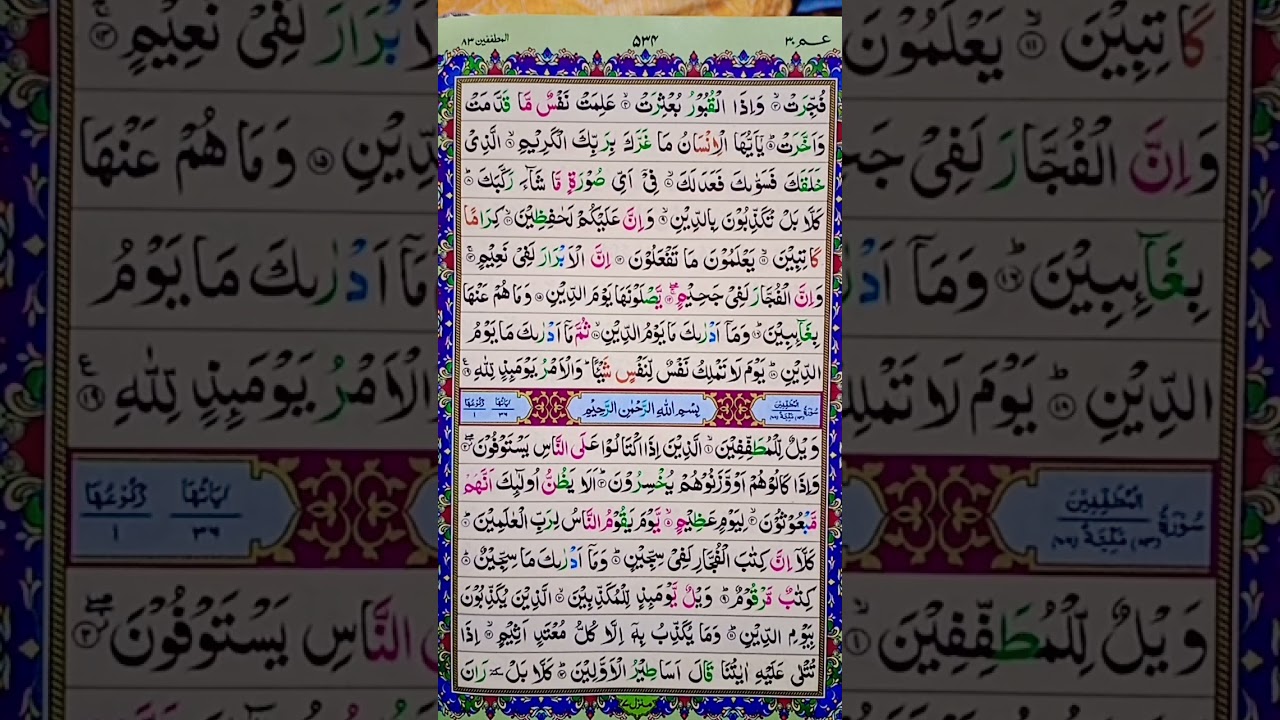 عـم ٣٠ ٥٣٤ المطففين ٨٣
فُجِّرَتْ ۙ‏﴿۳﴾ وَاِذَا الْقُبُوْرُ بُعْثِرَتْ ۙ‏﴿۴﴾ عَلِمَتْ نَفْسٌ مَّا قَدَّمَتْ
وَاَخَّرَتْ ؕ‏﴿۵﴾ يٰۤاَيُّهَا الْاِنْسَانُ مَا غَرَّكَ بِرَبِّكَ الْكَرِيْمِ ۙ‏﴿۶﴾ الَّذِىْ
خَلَقَكَ فَسَوّٰٮكَ فَعَدَلَكَ ۙ‏﴿۷﴾ فِىْۤ اَىِّ صُوْرَةٍ مَّا شَآءَ رَكَّبَكَ ؕ‏﴿۸﴾
كَلَّا بَلْ تُكَذِّبُوْنَ بِالدِّيْنِ ۙ‏﴿۹﴾ وَاِنَّ عَلَيْكُمْ لَحٰفِظِيْنَ ۙ‏﴿۱۰﴾ كِرَامًا
كَاتِبِيْنَ ۙ‏﴿۱۱﴾ يَعْلَمُوْنَ مَا تَفْعَلُوْنَ ‏﴿۱۲﴾ اِنَّ الْاَبْرَارَ لَفِىْ نَعِيْمٍ ۚ‏﴿۱۳﴾
وَاِنَّ الْفُجَّارَ لَفِىْ جَحِيْمٍ ۖۚ‏﴿۱۴﴾ يَّصْلَوْنَهَا يَوْمَ الدِّيْنِ ‏﴿۱۵﴾ وَمَا هُمْ عَنْهَا
بِغَآٮِٕبِيْنَ ؕ‏﴿۱۶﴾ وَمَاۤ اَدْرٰٮكَ مَا يَوْمُ الدِّيْنِ ۙ‏﴿۱۷﴾ ثُمَّ مَاۤ اَدْرٰٮكَ مَا يَوْمُ
الدِّيْنِ ؕ‏﴿۱۸﴾ يَوْمَ لَا تَمْلِكُ نَفْسٌ لِّنَفْسٍ شَيْـًٔا ؕ وَالْاَمْرُ يَوْمَٮِٕذٍ لِّلّٰهِ ‏﴿۱۹﴾
سُوْرَةُ الْمُطَفِّفِيْنَ مَكِّيَّةٌ (٨٣) (٨٦) بِسْمِ اللّٰهِ الرَّحْمٰنِ الرَّحِيْمِ اٰيَاتُهَا ٣٦ رُكُوْعُهَا ١
وَيْلٌ لِّلْمُطَفِّفِيْنَ ۙ‏﴿۱﴾ الَّذِيْنَ اِذَا اكْتَالُوْا عَلَى النَّاسِ يَسْتَوْفُوْنَ ۖ‏﴿۲﴾
وَاِذَا كَالُوْهُمْ اَوْ وَّزَنُوْهُمْ يُخْسِرُوْنَ ؕ‏﴿۳﴾ اَلَا يَظُنُّ اُولٰٓٮِٕكَ اَنَّهُمْ
مَّبْعُوْثُوْنَ ۙ‏﴿۴﴾ لِيَوْمٍ عَظِيْمٍ ۙ‏﴿۵﴾ يَّوْمَ يَقُوْمُ النَّاسُ لِرَبِّ الْعٰلَمِيْنَ ؕ‏﴿۶﴾
كَلَّاۤ اِنَّ كِتٰبَ الْفُجَّارِ لَفِىْ سِجِّيْنٍ ؕ‏﴿۷﴾ وَمَاۤ اَدْرٰٮكَ مَا سِجِّيْنٌ ؕ‏﴿۸﴾
كِتٰبٌ مَّرْقُوْمٌ ؕ‏﴿۹﴾ وَيْلٌ يَّوْمَٮِٕذٍ لِّلْمُكَذِّبِيْنَ ۙ‏﴿۱۰﴾ الَّذِيْنَ يُكَذِّبُوْنَ
بِيَوْمِ الدِّيْنِ ؕ‏﴿۱۱﴾ وَمَا يُكَذِّبُ بِهٖۤ اِلَّا كُلُّ مُعْتَدٍ اَثِيْمٍ ۙ‏﴿۱۲﴾ اِذَا
تُتْلٰى عَلَيْهِ اٰيٰتُنَا قَالَ اَسَاطِيْرُ الْاَوَّلِيْنَ ؕ‏﴿۱۳﴾ كَلَّا بَلْ ٚ رَانَ
منزل ٧